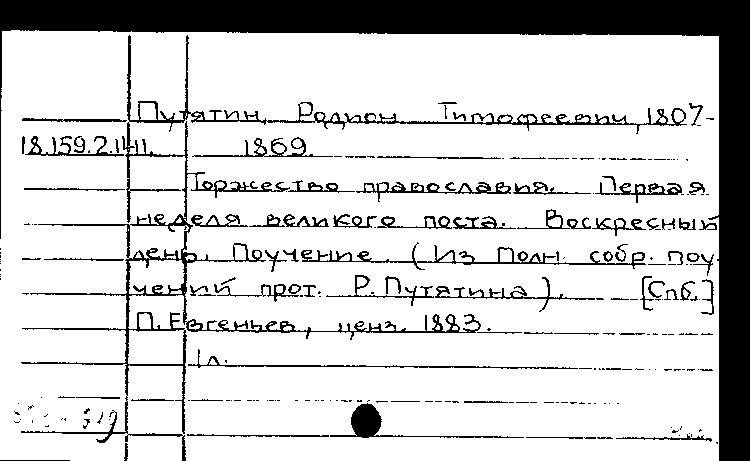 Путятин, Родион Тимофеевич, 1807-
18.159.2.141. 1869.
Торжество православия. Первая
неделя великого поста. Воскресный
день. Поучение. (Из Полн. собр. поу-
чений прот. Р. Путятина). [Спб.]
П. Евгеньев, ценз. 1883.
1 л.